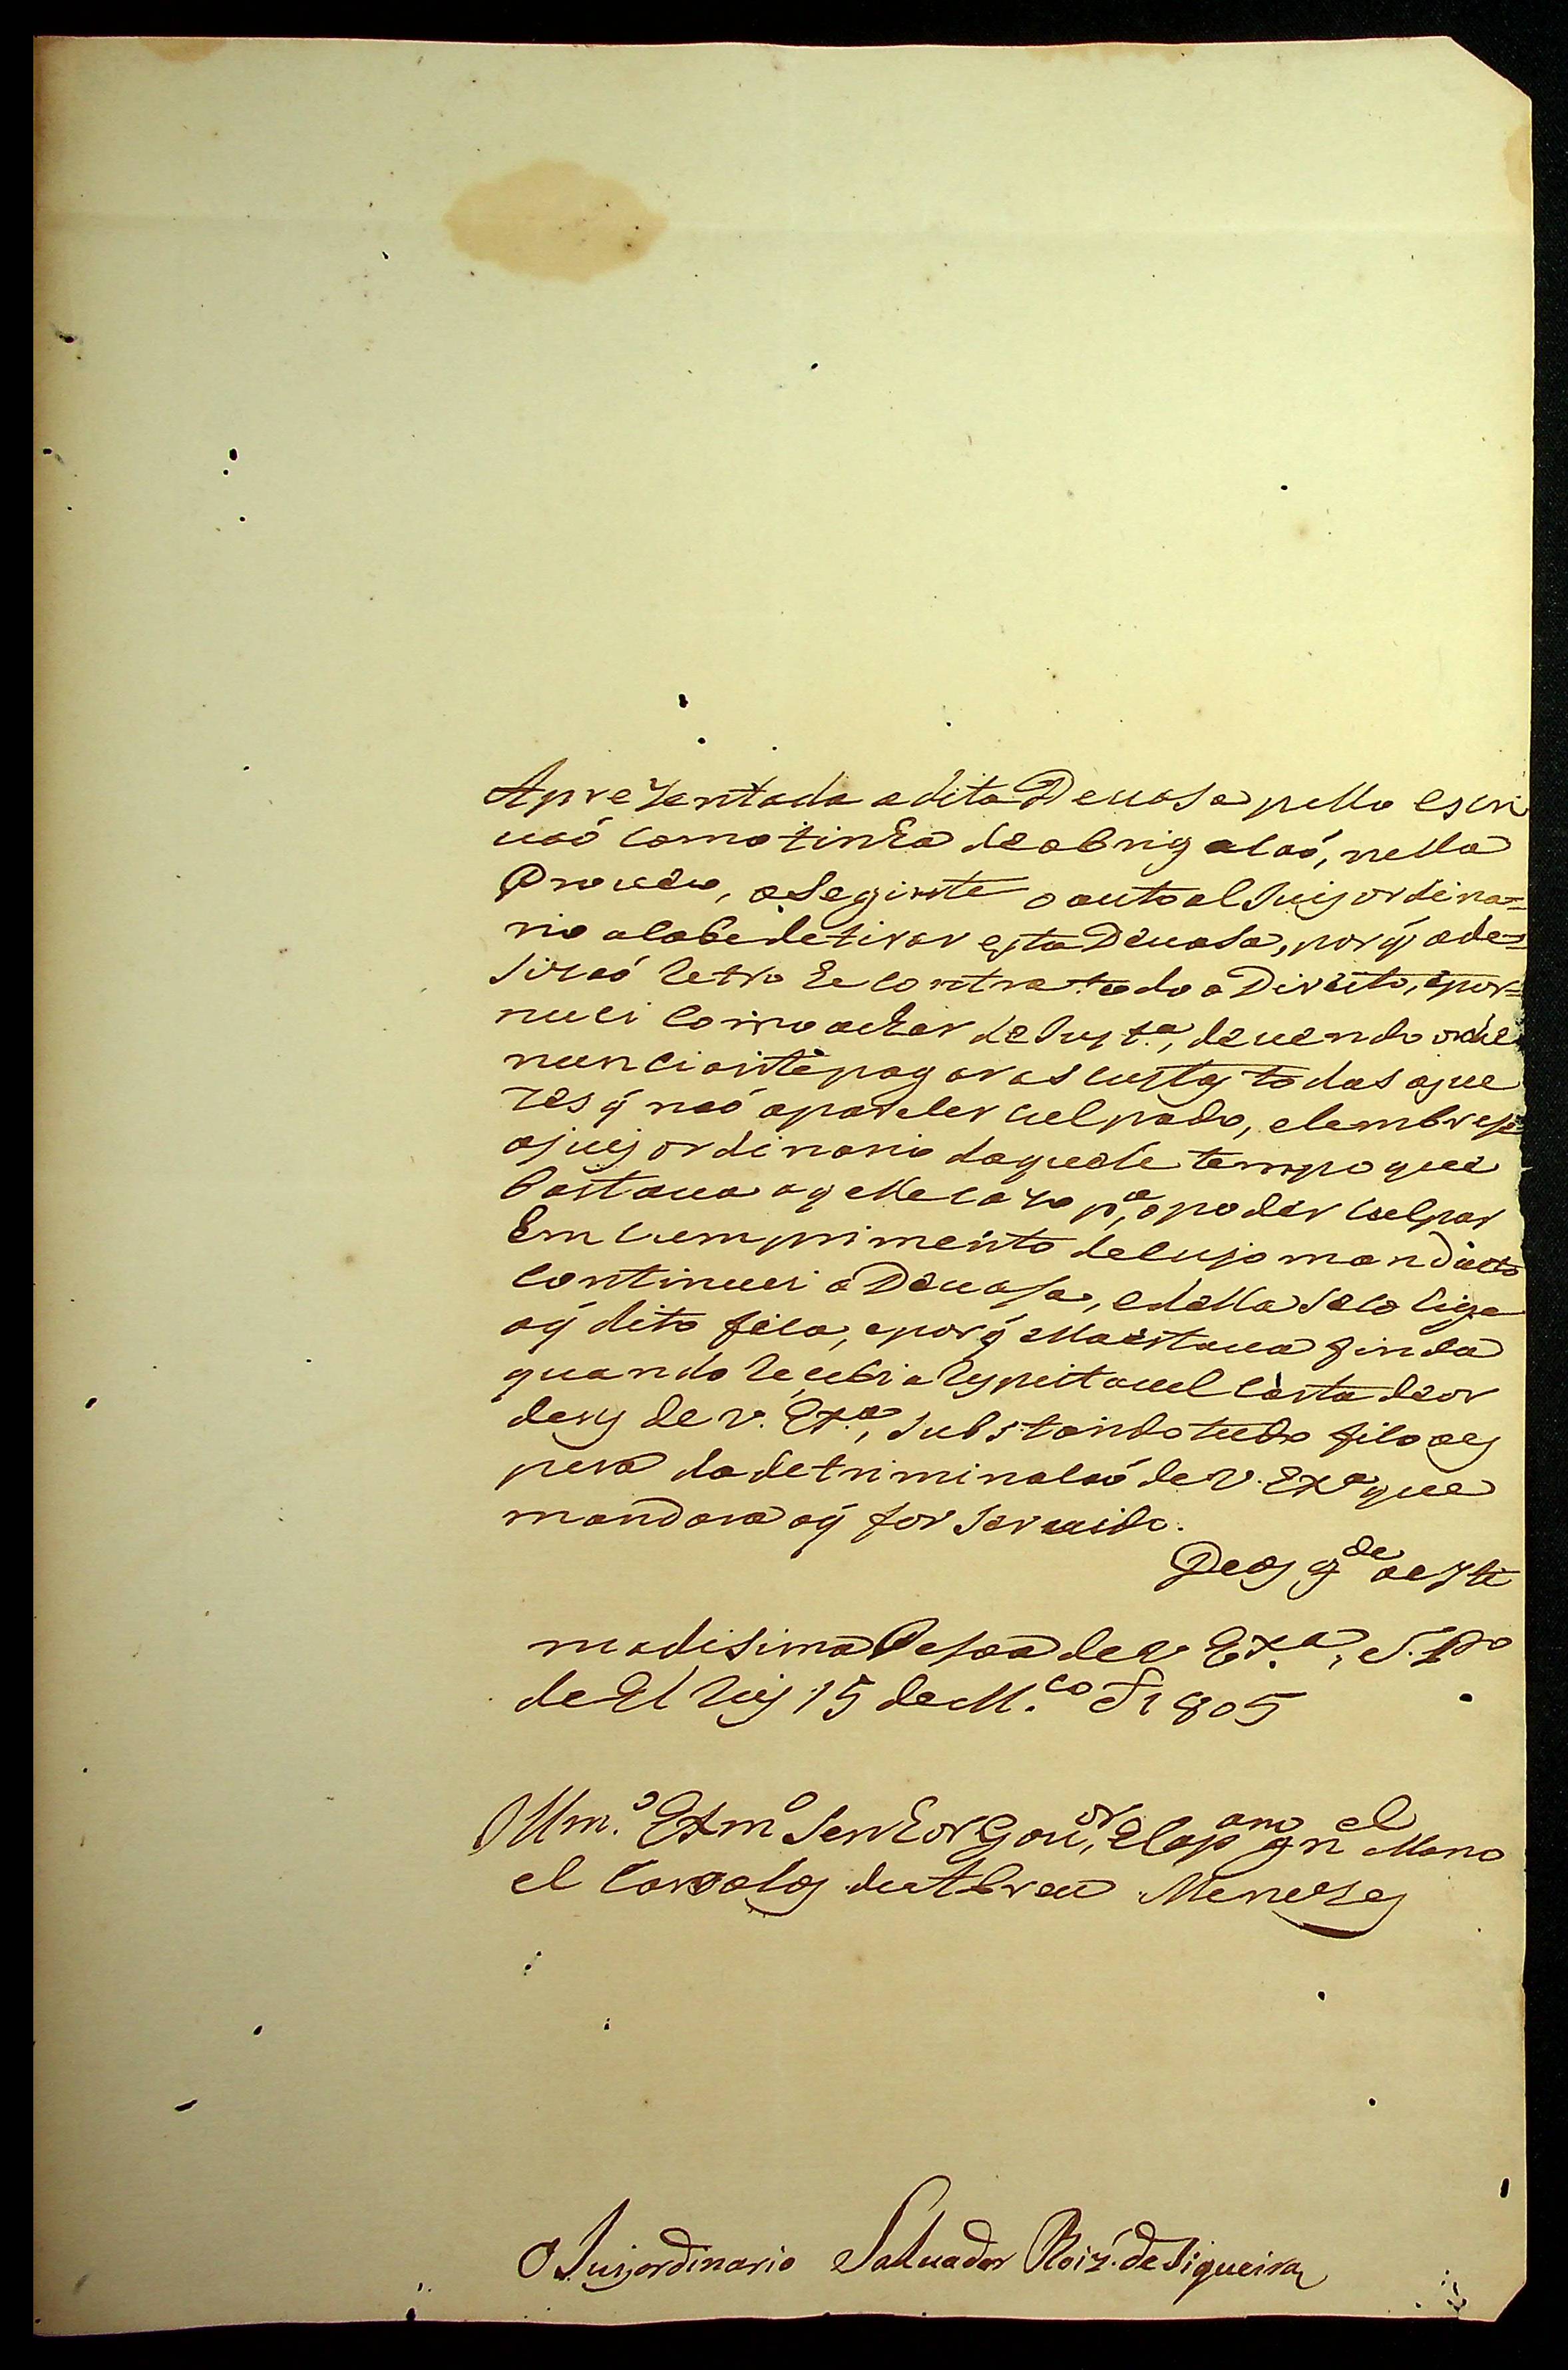 Aprezentada a dita Devasa pello escri
vaó como tinha de obrigasaó, nella
Proveo, o Seginte o auto al Juiz ordina=
rio acabe de tirar esta Devasa, por q̃ a de=
sizaó retro he contra todo o Direito, e por=
nuci como achar de Just.ª, devendo o de
nunciante pagar as custas todas aque
res q̃ naó apareser culpado, e lembrese
o juiz ordinario daquele tempo que
bastava aqelle cazo p.ª o poder culpar
Em cumprimento de cujo mandato
continuei a Devasa, e della se coliga
o q̃ dito fica, e por q̃ ella estava finda
quando recebi a respeitavel Carta de or
dens de V. Ex.ª, substando tudo fico a es
pera da detriminasaó de V. Ex.ª que
mandara o q̃ for servido.
Deos g.de a ezti
madisima Pesoa de V Ex.ª, S. P.
de El Rey 15 de M.ço d 1805
Illm.º Exmº Senhor Gov.or, e Cap.am gn.el Mano
el Carvalos de Abreu Menezes
O Juiz ordinario Salvador Roiz. de Siqueira